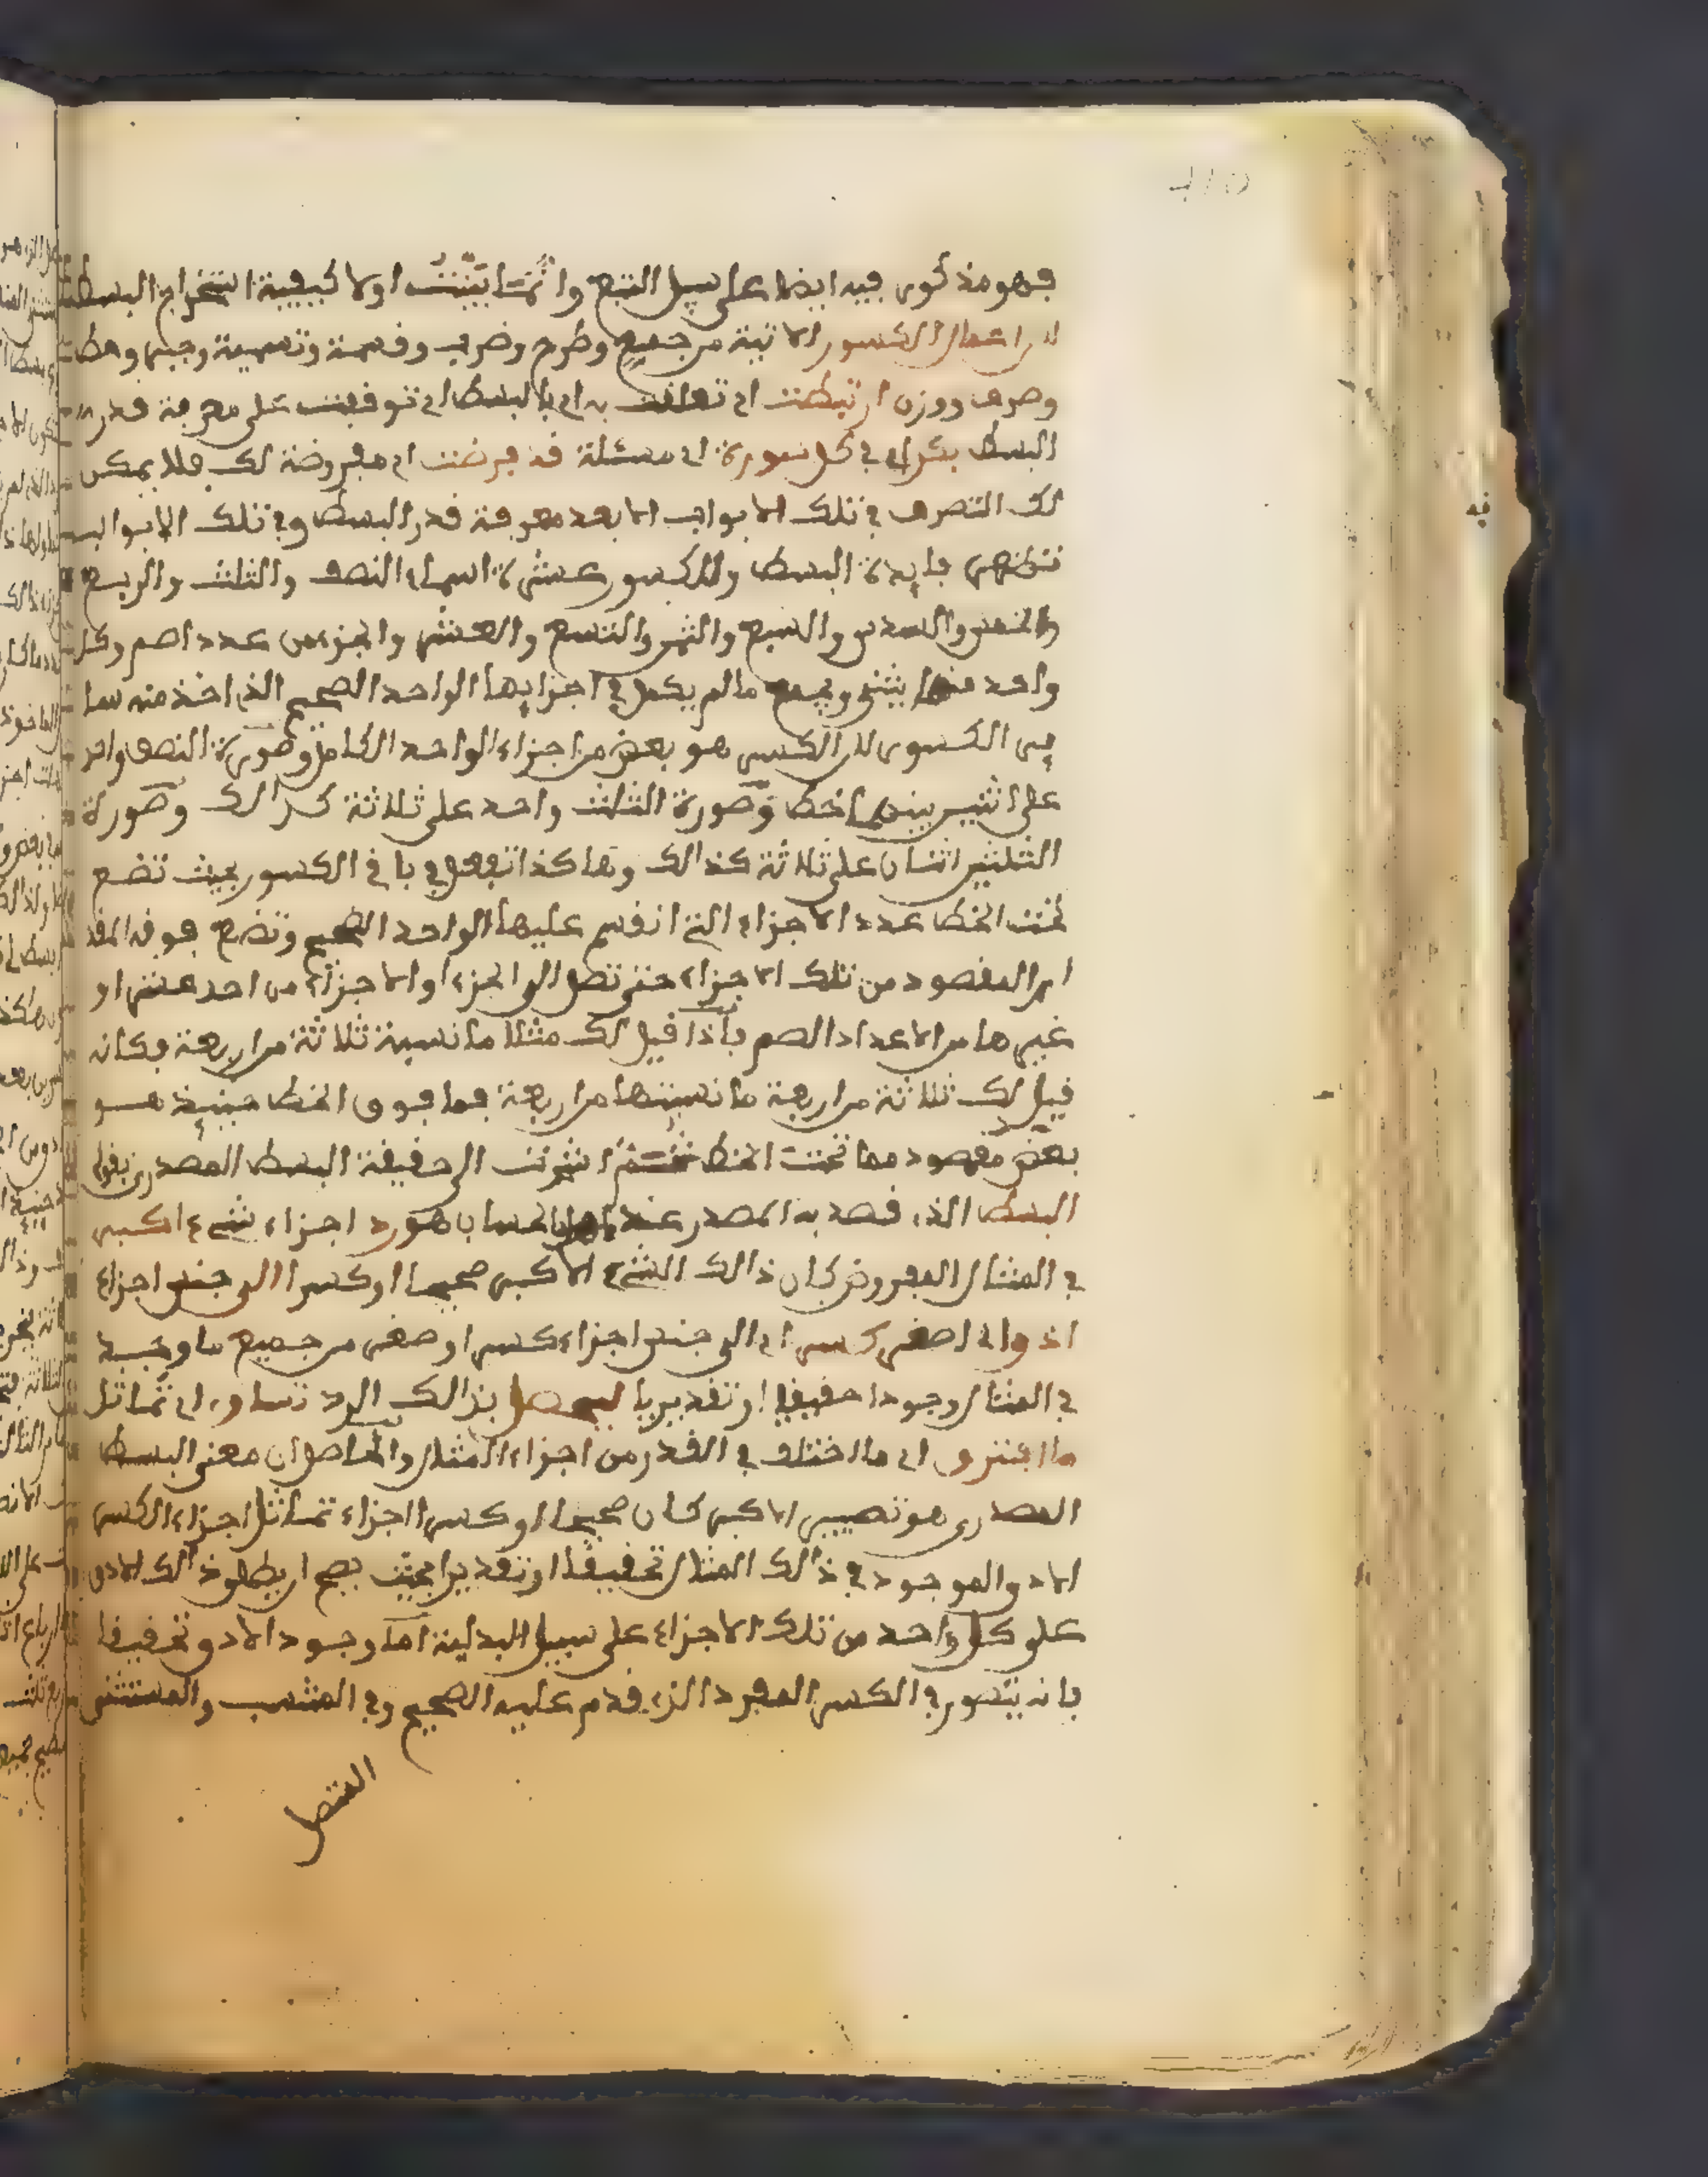 فهو مذكور فيه ايضا على سبيل التبع وانما بينت اولا كيفية استخراج البسط
لان اعمال الكسور الاتية من جميع وطرح وضرب وقسمة وتسمية وجبر وحط
وصرف ووزن ارتبطت اي تعلقت به اي بالبسط اي توقفت على معرفة قدر
البسط بكل اي في كل صورة اي مسئلة قد فرضت اي مفروضة لك فلا يمكن
لك التصرف في تلك الابواب الا بعد معرفة قدر البسط وفي تلك الابواب
تظهر فايدة البسط وللكسور عشرة اسماء النصف والثلث والربع
والخمس والسدس والسبع والثمن والتسع والعشر والجزء من عدد اصم وكل
واحد منها يثنى ويجمع ما لم يكمل في اجزايها الواحد الصحيح الذي اخذ منه سا
ير الكسور لان الكسر هو بعض من اجزاء الواحد الكامل وصورة النصف واحد
على اثنين بينهما خط وصورة الثلث واحد على ثلاثة كذالك وصورة
الثلثين اثنان على ثلاثة كذالك وهاكذا تفعل في باقي الكسور بحيث تضع
تحت الخط عدد الاجزاء التي انقسم عليها الواحد الصحيح وتضع فوقه القد
ر المقصود من تلك الاجزاء حتى تصل الى الجزء او الاجزاء من احد عشر او
غيرها من الاعداد الصم فاذا قيل لك مثلا ما نسبة ثلاثة من اربعة فكانه
قيل لك ثلاثة من اربعة ما نسبتها من اربعة فما فوق الخط حينيذ هو
بعض مقصود مما تحت الخط ثم اشرت الى حقيقة البسط المصدري بقولي
البسط الذي قصد به المصدر عند اهل الحساب هو رد اجزاء شيء اكبر
في المثال المفروض كان ذالك الشيء الاكبر صحيحا او كسرا الى جنس اجزاء
ادو اي اصغر كسر اي الى جنس اجزاء كسر اصغر من جميع ما وجد
في المثال وجودا حقيقيا او تقديريا ليحصل بذالك الرد تساوي اي تماثل
ما افترق اي ما اختلف في القدر من اجزاء المثال والحاصل ان معنى البسط
المصدري هو تصيير الاكبر كان صحيحا او كسرا اجزاء تماثل اجزاء الكسر
الادو الموجود في ذالك المثال تحقيقا او تقديرا بحيث يصح ان يطلق ذالك الادو
على كل واحد من تلك الاجزاء على سبيل البدلية اما وجود الادو تحقيقا
فانه يتصور في الكسر المفرد الذي قدم عليه الصحيح وفي المنتسب والمستثنى
المتصل